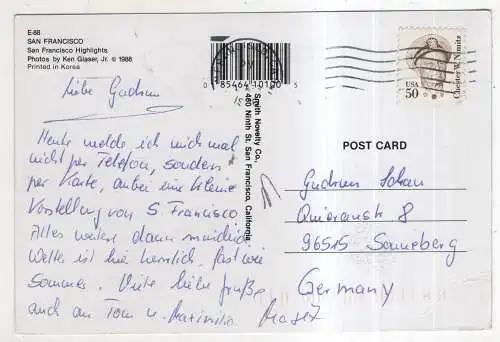 E-88
SAN FRANCISCO
San Francisco Highlights
Photos by Ken Glaser, Jr. © 1988
Printed in Korea
Liebe Gudrun
Heute melde ich mich mal
nicht per Telefon, sondern
per Karte, anbei eine kleine
Vorstellung von S. Francisco
Alles weitere dann mündlich
Wetter ist hier herrlich, fast wie
Sommer. Viele liebe Grüße
auch an Tom u. Maximilian
PM
0 85464 10100 5
Smith Novelty Co.,
460 Ninth St. San Francisco, California
USA
50
Chester W. Nimitz
POST CARD
Gudrun
8
96515 Sonneberg
Germany